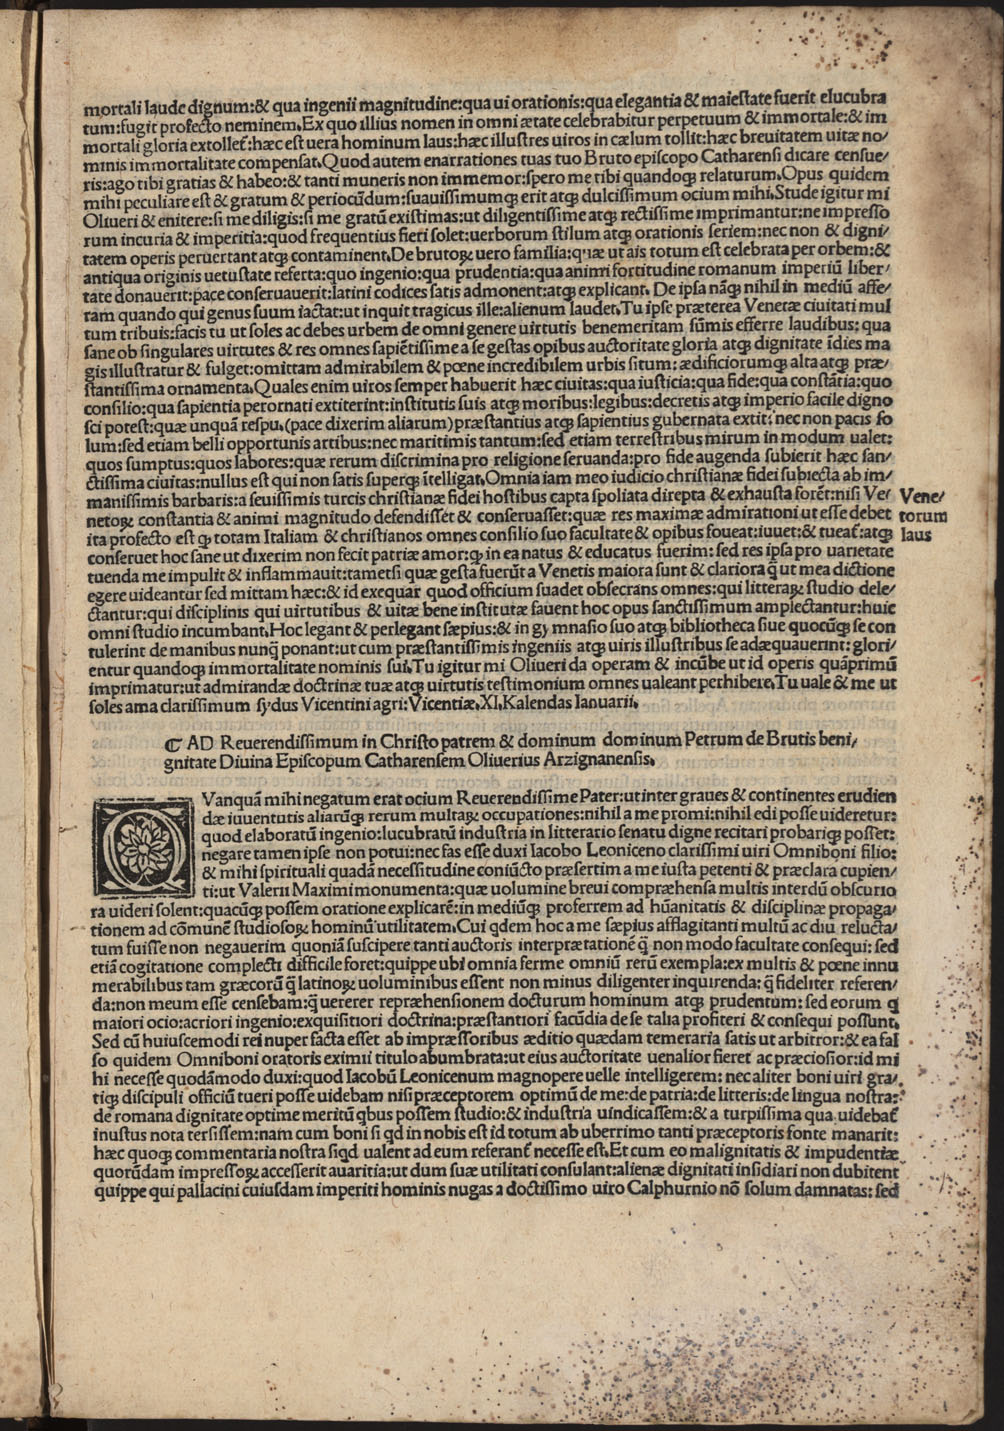 mortali laude dignum:& qua ingenii magnitudine:qua ui orationis:qua elegantia & maiestate fuerit elucubra
tum:fugit profecto neminem.Ex quo illius nomen in omni ætate celebrabitur perpetuum & immortale:& im
mortali gloria extollet̃:hæc est uera hominum laus:hæc illustres uiros in cælum tollit:hæc breuitatem uitæ no/
minis immortalitate compensat.Quod autem enarrationes tuas tuo Bruto episcopo Catharensi dicare censue/
ris:ago tibi gratias & habeo:& tanti muneris non immemor:spero me tibi quandoqꝫ relaturum.Opus quidem
mihi peculiare est & gratum & periocūdum:suauissimumqꝫ erit atqꝫ dulcissimum ocium mihi.Stude igitur mi
Oliueri & enitere:si me diligis:si me gratū existimas:ut diligentissime atqꝫ rectissime imprimantur:ne impresso
rum incuria & imperitia:quod frequentius fieri solet:uerborum stilum atqꝫ orationis seriem:nec non & digni/
tatem operis peruertant atqꝫ contaminent.De brutoꝝ uero familia:quæ ut ais totum est celebrata per orbem:&
antiqua originis uetustate referta:quo ingenio:qua prudentia:qua animi fortitudine romanum imperiū liber/
tate donauerit:pace conseruauerit:latini codices satis admonent:atqꝫ explicant. De ipsa nāqꝫ nihil in mediū affe/
ram quando qui genus suum iactat:ut inquit tragicus ille:alienum laudet.Tu ipse præterea Venetæ ciuitati mul
tum tribuis:facis tu ut soles ac debes urbem de omni genere uirtutis benemeritam sūmis efferre laudibus: qua
sane ob singulares uirtutes & res omnes sapiētissime a se gestas opibus auctoritate gloria atqꝫ dignitate īdies ma
gis illustratur & fulget:omittam admirabilem & pœne incredibilem urbis situm:ædificiorumqꝫ alta atqꝫ præ/
stantissima ornamenta.Quales enim uiros semper habuerit hæc ciuitas:qua iusticia:qua fide:qua constātia:quo
consilio:qua sapientia perornati extiterint:institutis suis atqꝫ moribus:legibus:decretis atqꝫ imperio facile digno
sci potest:quæ unquā respu.(pace dixerim aliarum)præstantius atqꝫ sapientius gubernata extit: nec non pacis so
lum:sed etiam belli opportunis artibus:nec maritimis tantum:sed etiam terrestribus mirum in modum ualet:
quos sumptus:quos labores:quæ rerum discrimina pro religione seruanda:pro fide augenda subierit hæc san/
ctissima ciuitas:nullus est qui non satis superqꝫ ītelligat.Omnia iam meo iudicio christianæ fidei subiecta ab im/
manissimis barbaris:a seuissimis turcis christianæ fidei hostibus capta spoliata direpta & exhausta forēt:nisi Ve/
netoꝝ constantia & animi magnitudo defendisset & conseruasset:quæ res maximæ admirationi ut esse debet
ita profecto est qꝫ totam Italiam & christianos omnes consilio suo facultate & opibus foueat:iuuet:& tueat̃:atqꝫ
conseruet hoc sane ut dixerim non fecit patriæ amor:qꝫ in ea natus & educatus fuerim: sed res ipsa pro uarietate
tuenda me impulit & inflammauit:tametsi quæ gesta fuerūt a Venetis maiora sunt & clariora q̃ ut mea dictione
egere uideantur sed mittam hæc:& id exequar quod officium suadet obsecrans omnes:qui litteraꝝ studio dele/
ctantur:qui disciplinis qui uirtutibus & uitæ bene institutæ fauent hoc opus sanctissimum amplectantur:huic
omni studio incumbant.Hoc legant & perlegant sæpius:& in gymnasio suo atqꝫ bibliotheca siue quocūqꝫ se con
tulerint de manibus nunq̃ ponant:ut cum præstantissimis ingeniis atqꝫ uiris illustribus se adæquauerint: glori/
entur quandoqꝫ immortalitate nominis sui.Tu igitur mi Oliueri da operam & incūbe ut id operis quāprimū
imprimatur:ut admirandæ doctrinæ tuæ atqꝫ uirtutis testimonium omnes ualeant perhibere.Tu uale & me ut
soles ama clarissimum sydus Vicentini agri:Vicentiæ.XI.Kalendas Ianuarii.
Vene/
torum
laus
⁋ AD Reuerendissimum in Christo patrem & dominum dominum Petrum de Brutis beni/
gnitate Diuina Episcopum Catharensem Oliuerius Arzignanensis.
QVanquā mihi negatum erat ocium Reuerendissime Pater:ut inter graues & continentes erudien
dæ iuuentutis aliarūqꝫ rerum multaꝝ occupationes:nihil a me promi:nihil edi posse uideretur:
quod elaboratū ingenio:lucubratū industria in litterario senatu digne recitari probariqꝫ posset:
negare tamen ipse non potui:nec fas esse duxi Iacobo Leoniceno clarissimi uiri Omniboni filio:
& mihi spirituali quadā necessitudine coniūcto præsertim a me iusta petenti & præclara cupien/
ti:ut Valerii Maximi monumenta:quæ uolumine breui compræhensa multis interdū obscurio
ra uideri solent:quacūqꝫ possem oratione explicarē:in mediūqꝫ proferrem ad hūanitatis & disciplinæ propaga/
tionem ad cōmunē studiosoꝝ hominū utilitatem.Cui q̇dem hoc a me sæpius afflagitanti multū ac diu relucta/
tum fuisse non negauerim quoniā suscipere tanti auctoris interpræetationē q̃ non modo facultate consequi: sed
etiā cogitatione complecti difficile foret:quippe ubi omnia ferme omniū rerū exempla:ex multis & pœne innu
merabilibus tam græcorū q̃ latinoꝝ uoluminibus essent non minus diligenter inquirenda: q̃ fideliter referen/
da:non meum esse censebam:q̃ uererer repræhensionem docturum hominum atqꝫ prudentum: sed eorum q̇
maiori ocio:acriori ingenio:exquisitiori doctrina:præstantiori facūdia de se talia profiteri & consequi possunt.
Sed cū huiuscemodi rei nuper facta esset ab impræssoribus æditio quædam temeraria satis ut arbitror:& ea fal
so quidem Omniboni oratoris eximii titulo abumbrata:ut eius auctoritate uenalior fieret ac præciosior:id mi
hi necesse quodāmodo duxi:quod Iacobū Leonicenum magnopere uelle intelligerem: nec aliter boni uiri gra/
tiqꝫ discipuli officiū tueri posse uidebam nisi præceptorem optimū de me:de patria:de litteris:de lingua nostra:
de romana dignitate optime meritū q̇bus possem studio:& industria uindicassem:& a turpissima qua uidebat̃
inustus nota tersissem:nam cum boni si q̇d in nobis est id totum ab uberrimo tanti præceptoris fonte manarit:
hæc quoqꝫ commentaria nostra siq̇d ualent ad eum referant̃ necesse est.Et cum eo malignitatis & impudentiæ
quorūdam impressoꝝ accesserit auaritia:ut dum suæ utilitati consulant:alienæ dignitati insidiari non dubitent
quippe qui pallacini cuiusdam imperiti hominis nugas a doctissimo uiro Calphurnio nō solum damnatas: sed